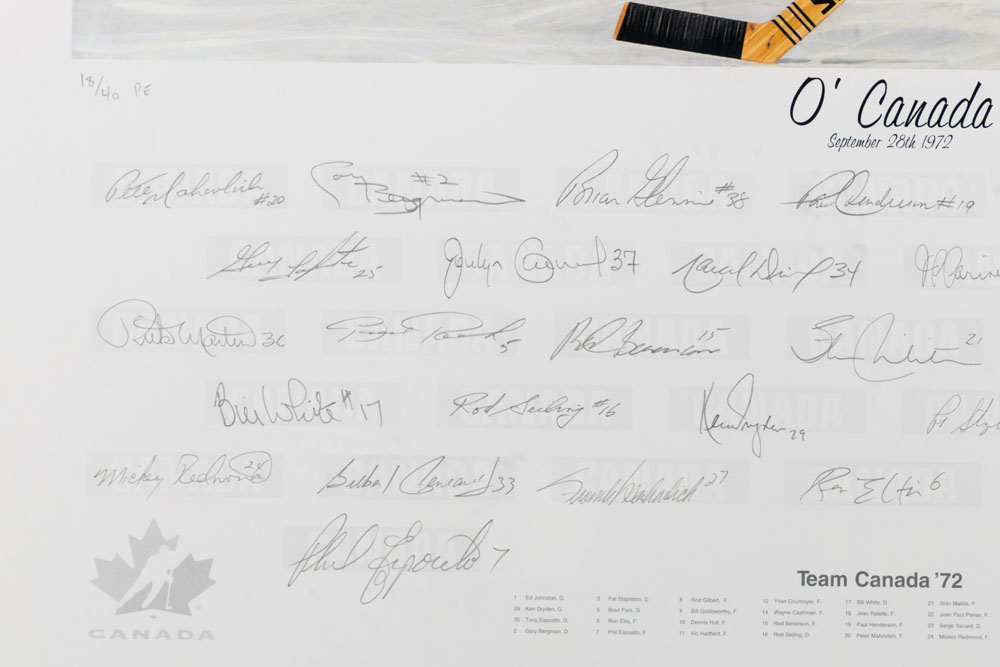 18/40 PE
O' Canada
September 28th 1972
Peter Mahovlich #20
Gary Bergman #2
Brian Glennie #38
Paul Henderson #19
Guy Lapointe 25
Jocelyn Guevremont 37
Marcel Dionne 34
Rick Martin 36
5
Red Berenson 15
Stan Mikita 21
Bill White #17
Rod Seiling #16
Ken Dryden 29
Mickey Redmond 24
Gilbert Perreault 33
Frank Mahovlich 27
Ron Ellis 6
Phil Esposito 7
CANADA
Team Canada '72
1 Ed Johnston, G.
29 Ken Dryden, G.
35 Tony Esposito, G.
2 Gary Bergman, D.
3 Pat Stapleton, D.
5 Brad Park, D.
6 Ron Ellis, F.
7 Phil Esposito, F.
8 Rod Gilbert, F.
9 Bill Goldsworthy, F.
10 Dennis Hull, F.
11 Vic Hadfield, F.
12 Yvan Cournoyer, F.
14 Wayne Cashman, F.
15 Red Berenson, F.
16 Rod Seiling, D.
17 Bill White, D.
18 Jean Ratelle, F.
19 Paul Henderson, F.
20 Pete Mahovlich, F.
21 Stan Mikita, F.
22 Jean Paul Parise, F.
23 Serge Savard, D.
24 Mickey Redmond, F.